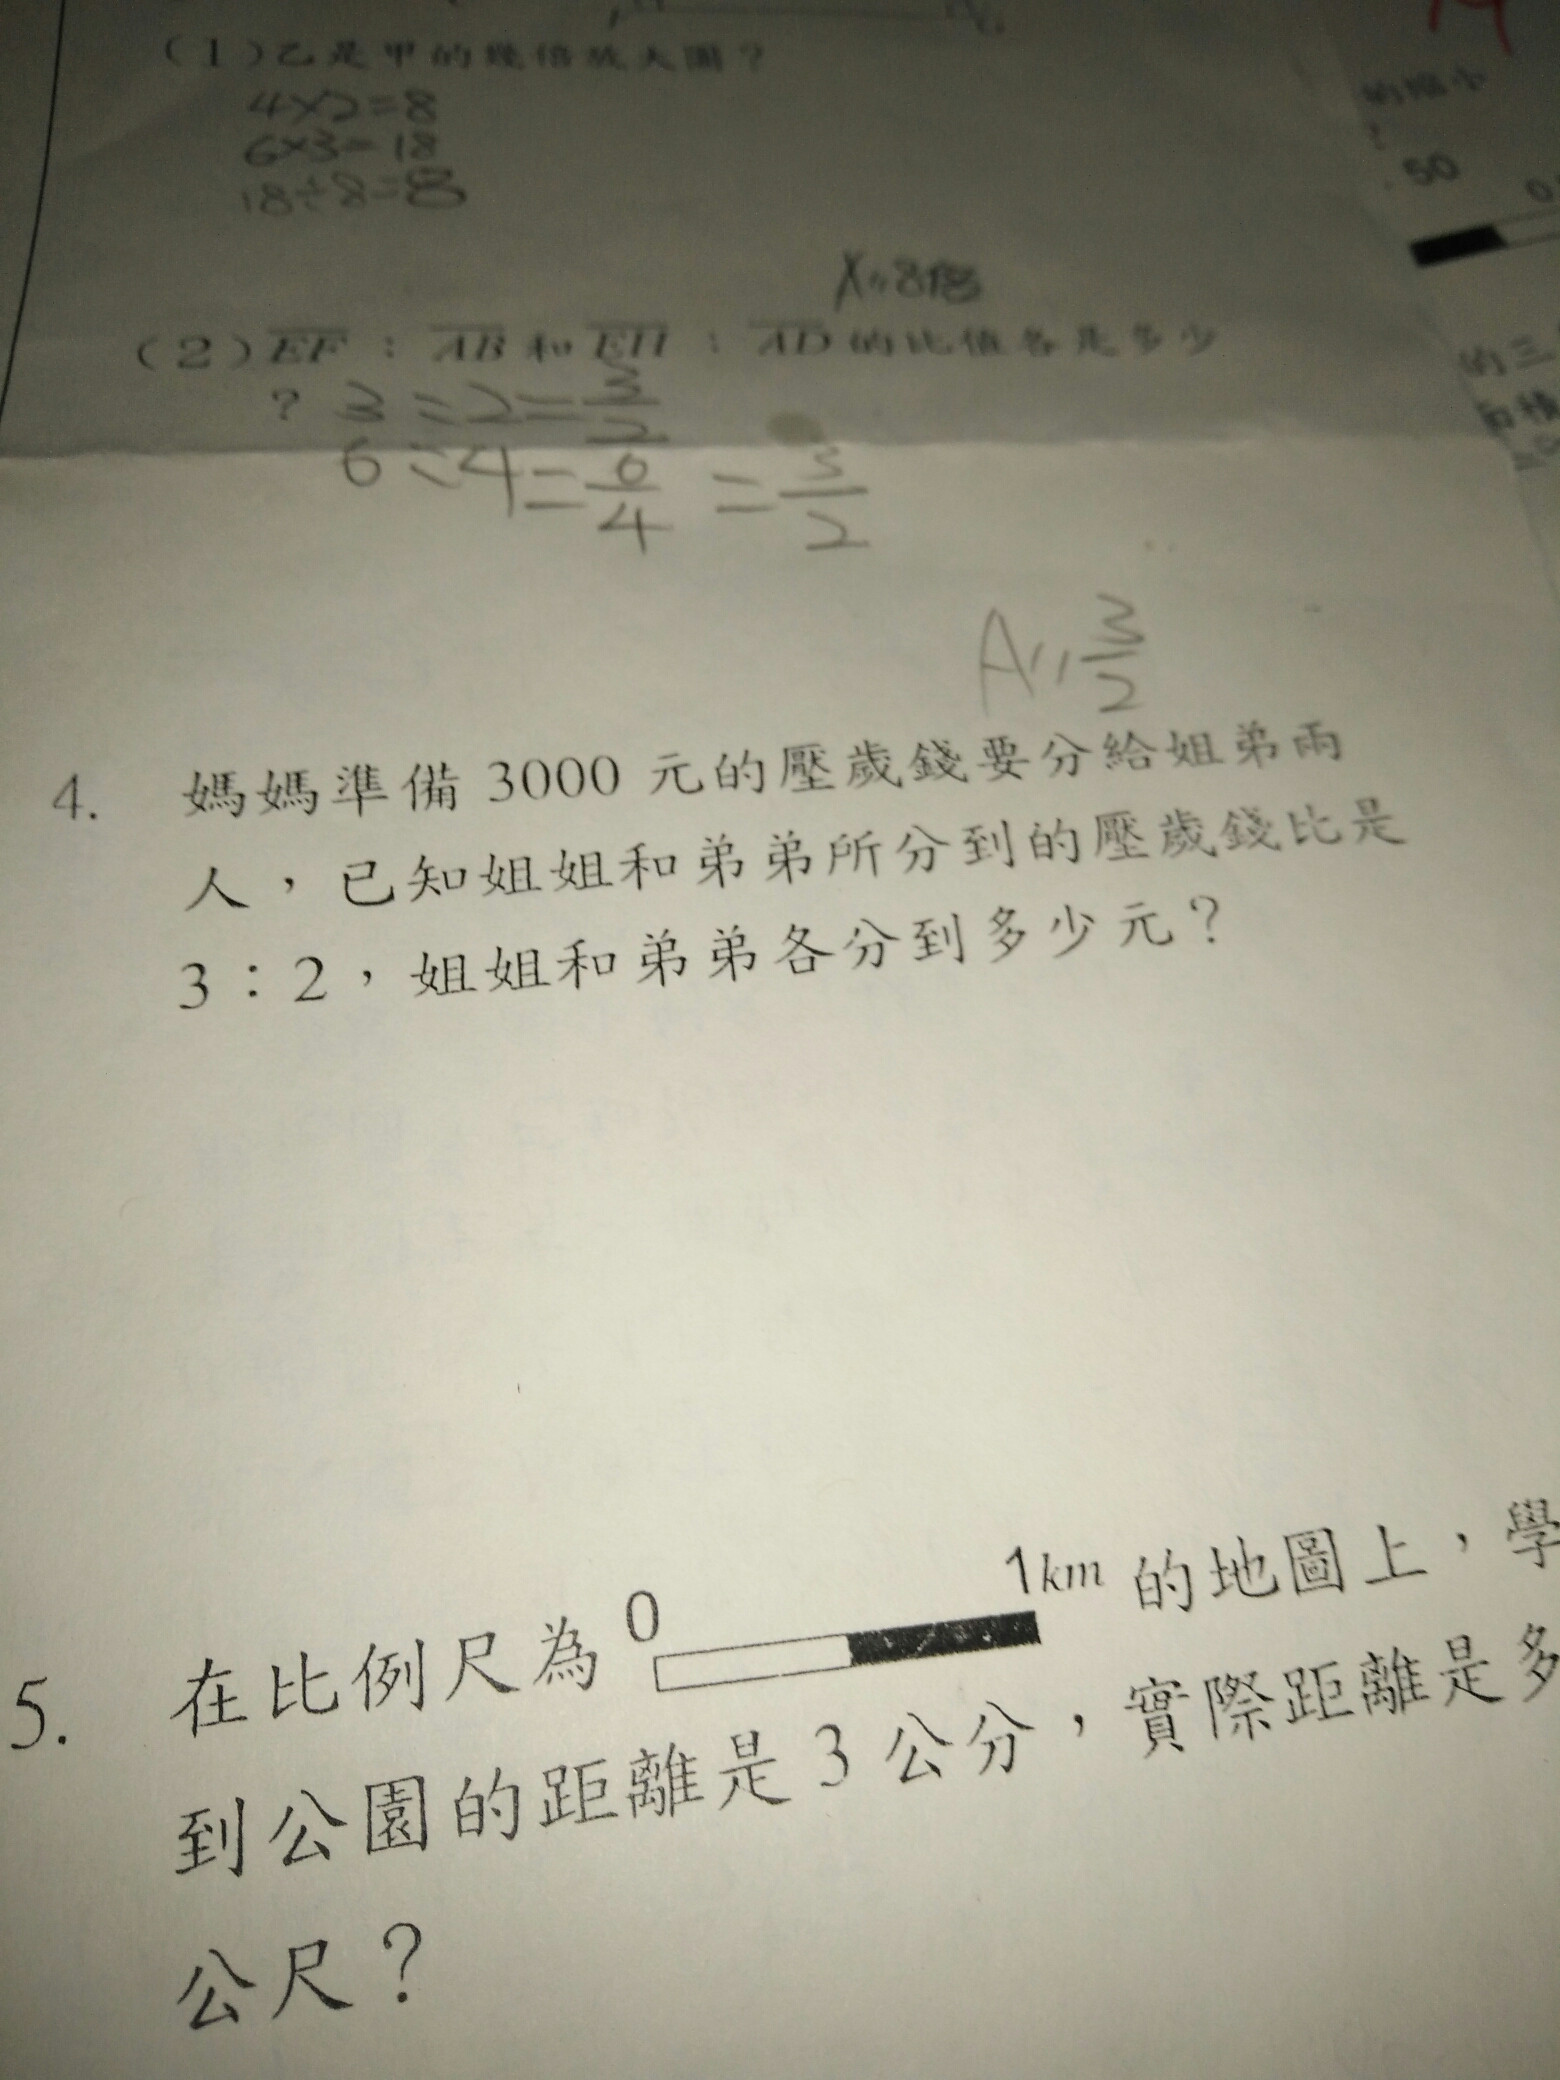 (1)乙是甲的幾倍放大圖？
4×2=8
6×3=18
18÷8=8
A:8倍
(2)EF：AB和EH：AD的比值各是多少
？ 3÷2=3/2
6÷4=6/4=3/2
A:3/2
4. 媽媽準備 3000 元的壓歲錢要分給姐弟兩
人，已知姐姐和弟弟所分到的壓歲錢比是
3：2，姐姐和弟弟各分到多少元？
5. 在比例尺為 0 1km 的地圖上，學
到公園的距離是 3 公分，實際距離是多
公尺？
的縮小
50
的三